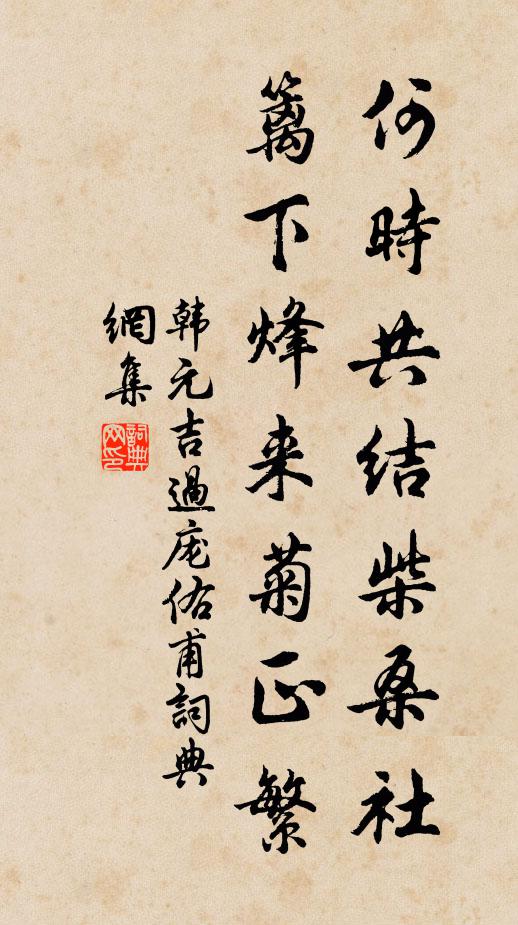 何時共结柴桑社
篱下烽来菊正繁
韩元吉過庞佑甫詞典
網集
詞典网印